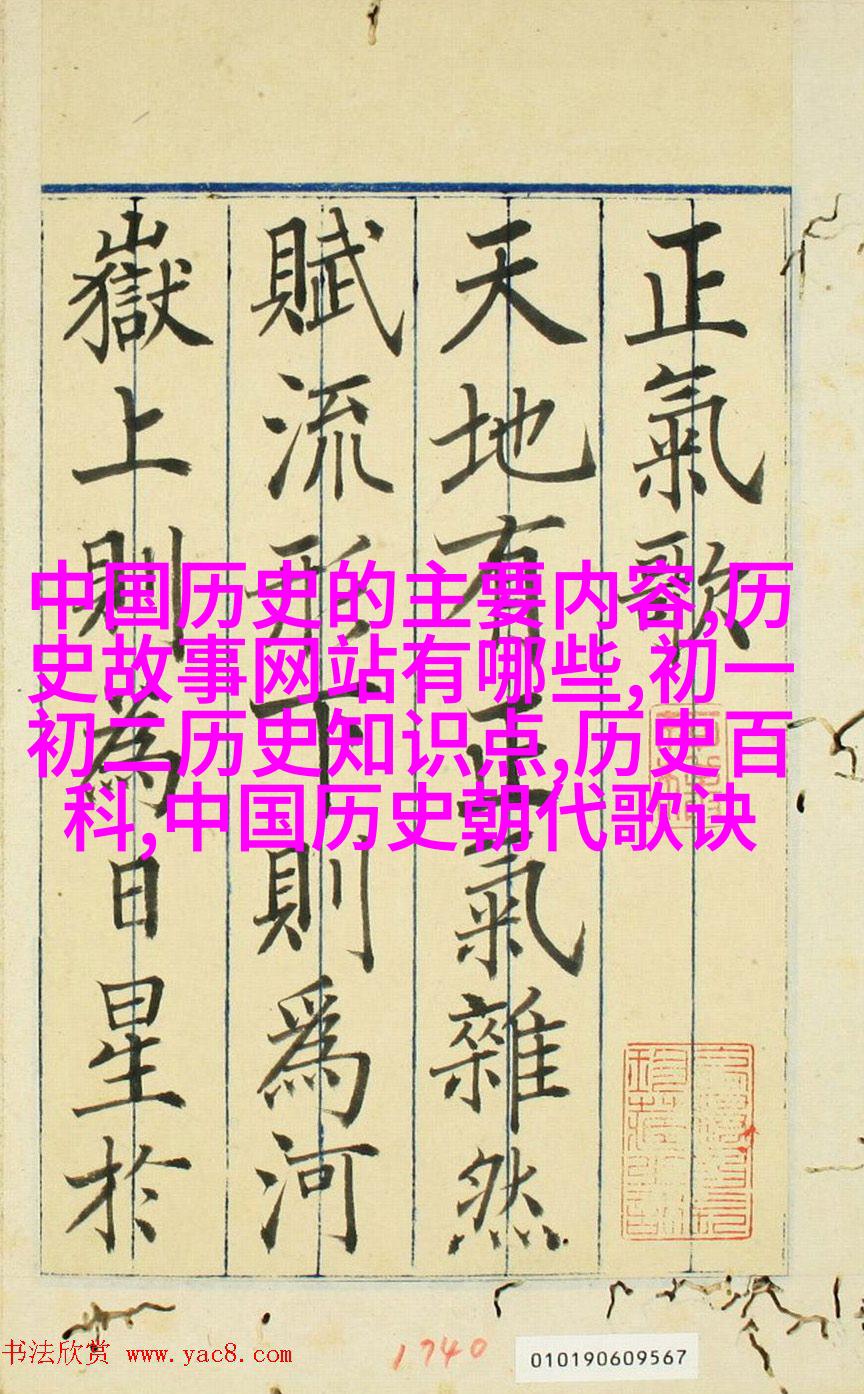 正氣歌
天地有正氣雜然
賦流形下則爲河
嶽上則為日星於
中国历史的主要内容,历
史故事网站有哪些,初一
初二历史知识点,历史百
科,中国历史朝代歌诀
书法欣赏 www.yac8.com
1740
010190609567